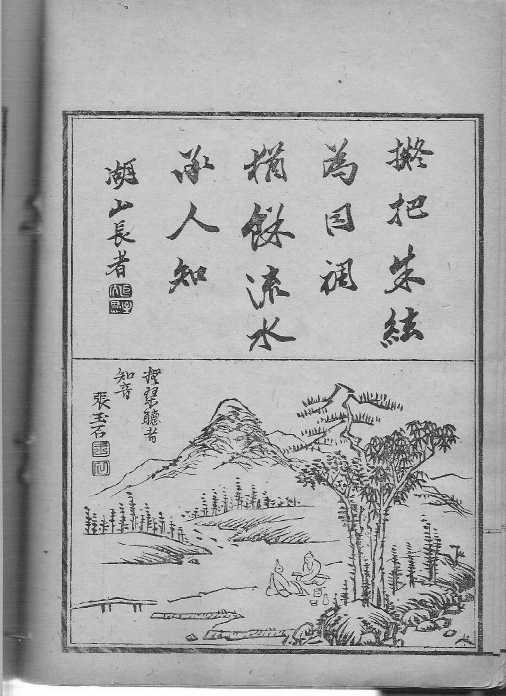 擬把朱絃
為君調
猶餘流水
人知
湖山長者
聽者
知音
張玉石